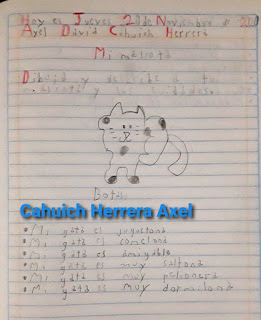 Hoy es Jueves 20 de Noviembre d 20
Axel David Cahuich Herrera
Mi mascota
Dibuja y describe a tu
mascota y los cuidados.
Botas
Cahuich Herrera Axel
• Mi gata es juguetona
• Mi gata es comelona
• Mi gata es amigable
• Mi gata es muy saltona
• Mi gata es muy peleonera
• Mi gata es muy dormilona